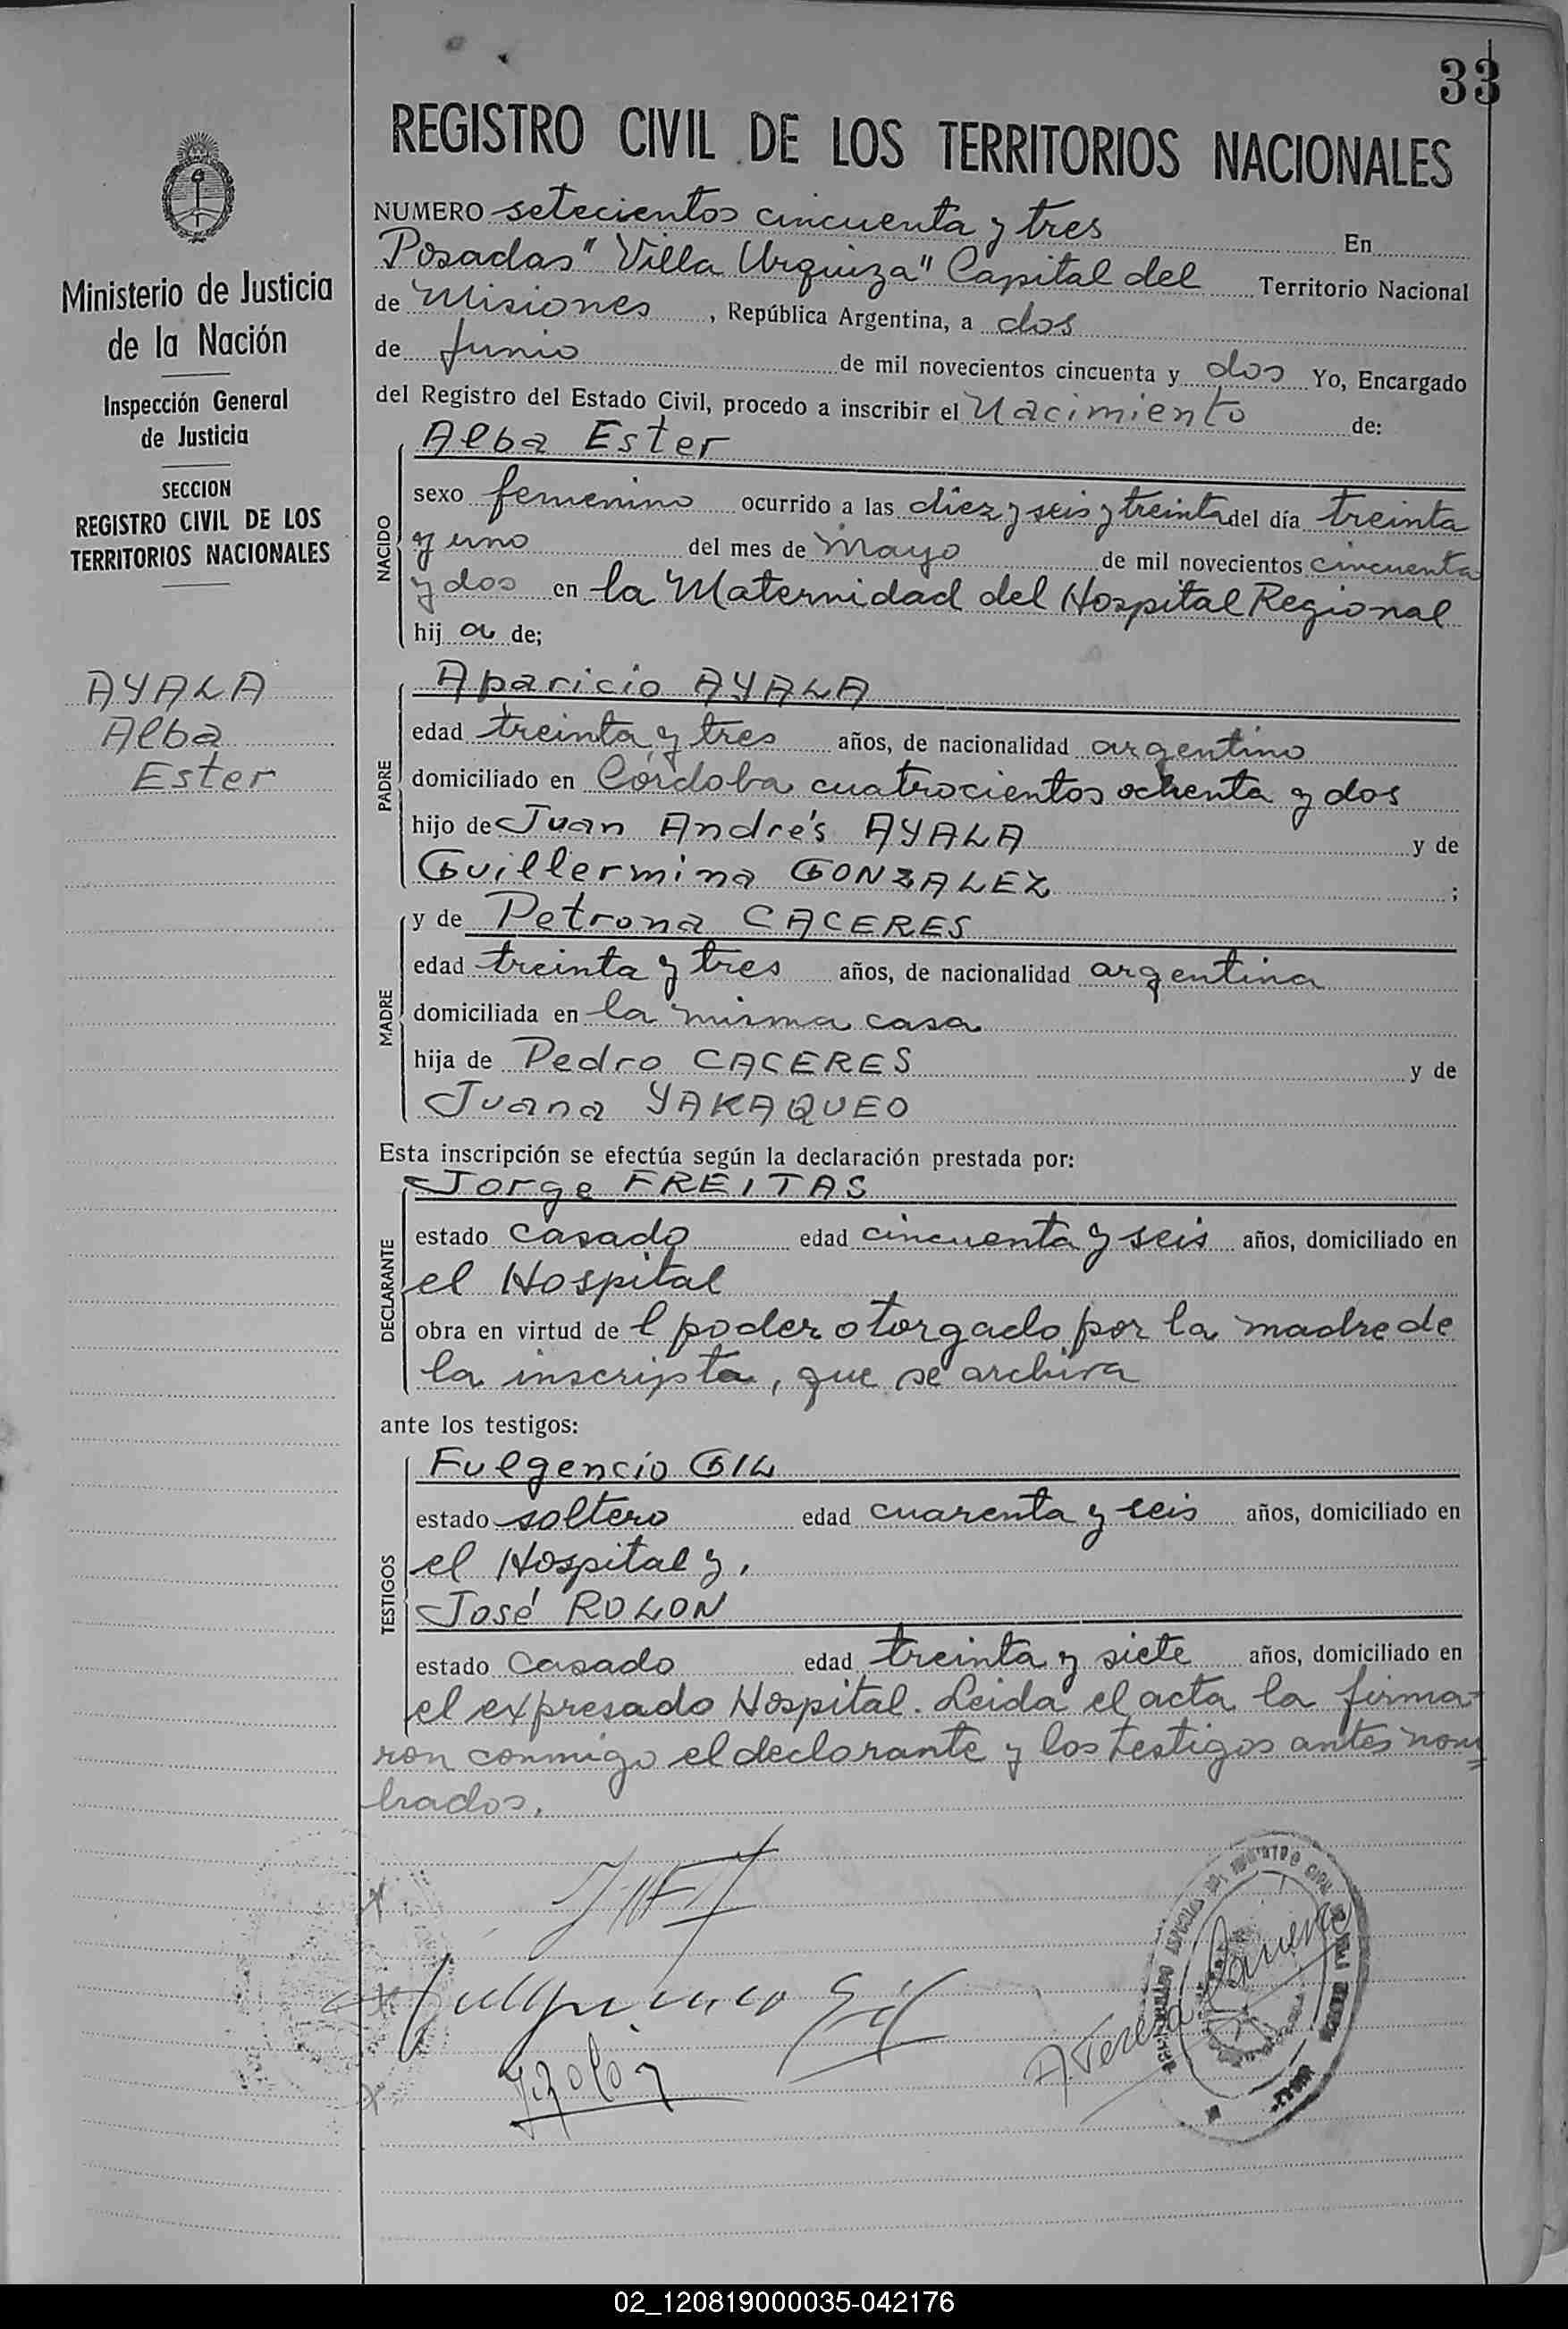 33
REGISTRO CIVIL DE LOS TERRITORIOS NACIONALES
Ministerio de Justicia
de la Nación
Inspección General
de Justicia
SECCION
REGISTRO CIVIL DE LOS
TERRITORIOS NACIONALES
AYALA
Alba
Ester
NUMERO setecientos cincuenta y tres En
Posadas "Villa Urquiza" Capital del Territorio Nacional
de Misiones, República Argentina, a dos
de Junio de mil novecientos cincuenta y dos Yo, Encargado
del Registro del Estado Civil, procedo a inscribir el Nacimiento de:
NACIDO
Alba Ester
sexo femenino ocurrido a las diez y seis y treinta del día treinta
y uno del mes de Mayo de mil novecientos cincuenta
y dos en la Maternidad del Hospital Regional
hij a de;
PADRE
Aparicio AYALA
edad treinta y tres años, de nacionalidad argentino
domiciliado en Córdoba cuatrocientos ochenta y dos
hijo de Juan Andrés AYALA y de
Guillermina GONZALEZ ;
MADRE
y de Petrona CACERES
edad treinta y tres años, de nacionalidad argentina
domiciliada en la misma casa
hija de Pedro CACERES y de
Juana YAKAQUEO
Esta inscripción se efectúa según la declaración prestada por:
DECLARANTE
Jorge FREITAS
estado casado edad cincuenta y seis años, domiciliado en
el Hospital
obra en virtud de l poder otorgado por la madre de
la inscripta, que se archiva
ante los testigos:
TESTIGOS
Fulgencio GIL
estado soltero edad cuarenta y seis años, domiciliado en
el Hospital y,
José ROLON
estado casado edad treinta y siete años, domiciliado en
el expresado Hospital. Leida el acta la firma-
ron conmigo el declarante y los testigos antes nom=
brados.
Fulgencio Gil
J. Rolón
A. Teresa
02_120819000035-042176